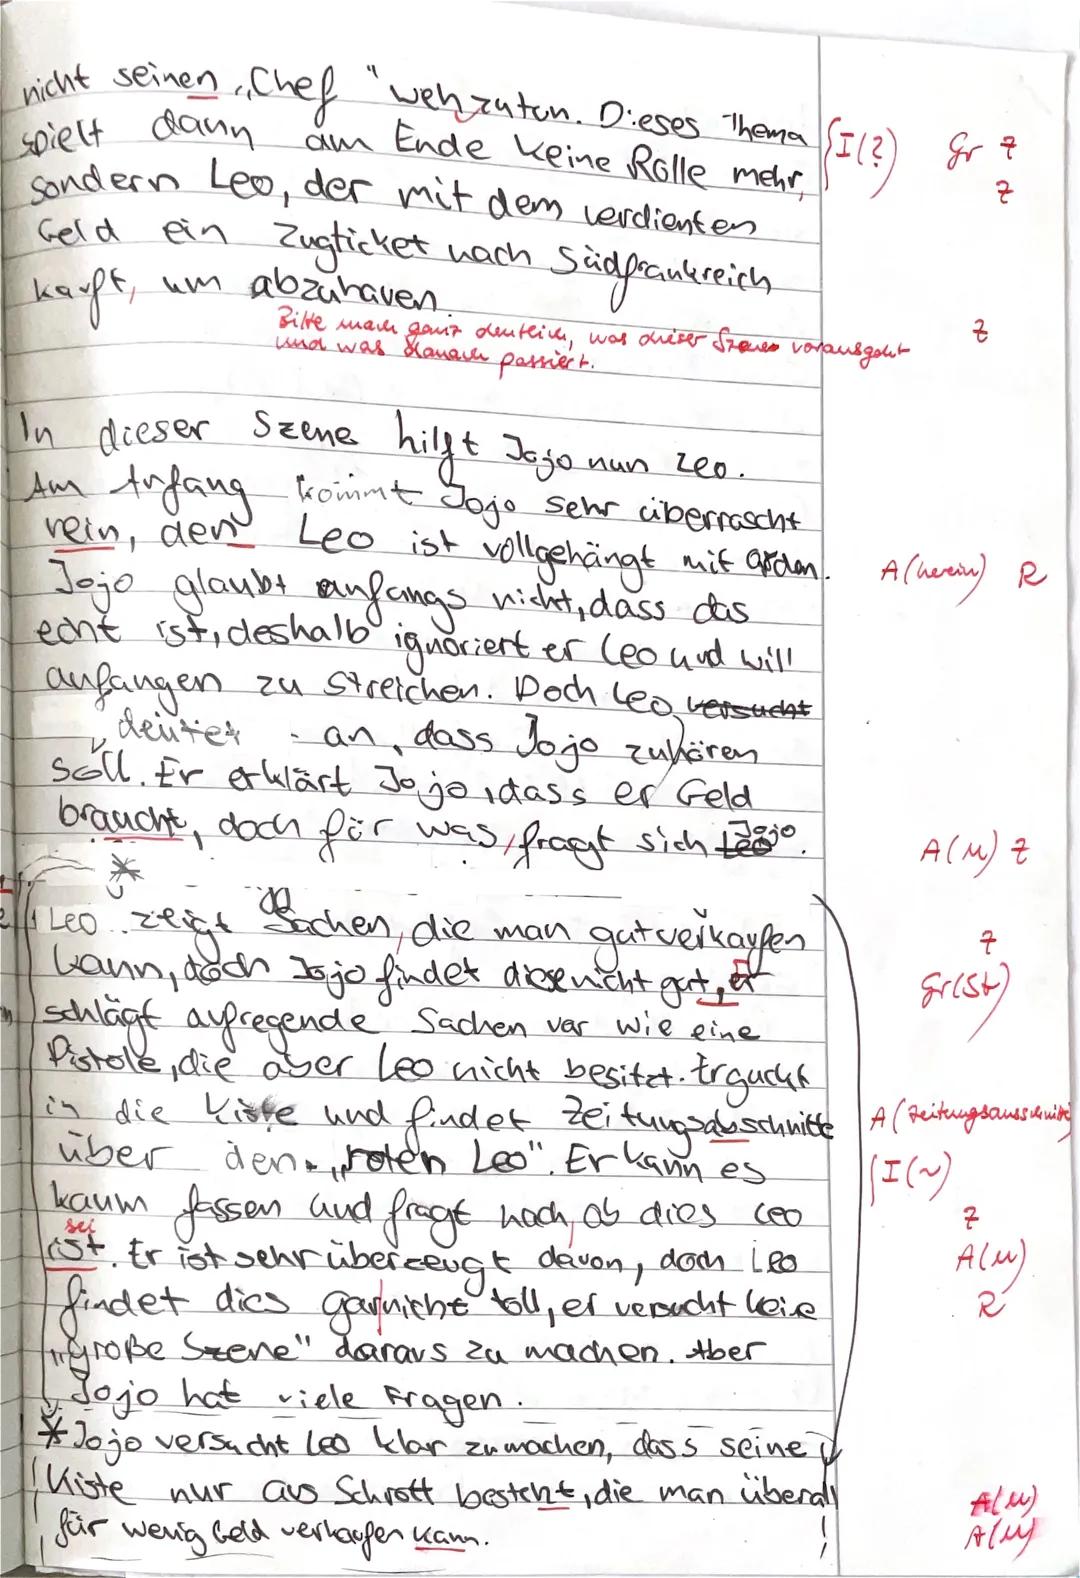 nicht seinen „Chef" wehzutun. Dieses Thema {I(?) Gr Z
spielt dann am Ende keine Rolle mehr, Z
sondern Leo, der mit dem verdienten
Geld ein Zugticket nach Südfrankreich
kauft, um abzuhauen. Z
Bitte mach ganz deutlich, was dieser Szene vorausgeht
und was danach passiert.
In dieser Szene hilft Jojo nun Leo.
Am Anfang kommt Jojo sehr überrascht
rein, den Leo ist vollgehängt mit Orden. A(herein) R
Jojo glaubt anfangs nicht, dass das
echt ist, deshalb ignoriert er Leo und will
anfangen zu streichen. Doch Leo versucht
deutet an, dass Jojo zuhören
soll. Er erklärt Jojo, dass er Geld
braucht, doch für was, fragt sich Leo Jojo. A(M) Z
Leo zeigt Sachen, die man gut verkaufen Z
kann, doch Jojo findet diese nicht gut, er Gr(St)
schlägt aufregende Sachen vor wie eine
Pistole, die aber Leo nicht besitzt. Er guckt
in die Kiste und findet Zeitungsabschnitte A(Zeitungsausschnitte)
über den „roten Leo". Er kann es {I(~)
kaum fassen und fragt nach, ob dies Leo Z
sei
ist. Er ist sehr überzeugt davon, doch Leo A(M)
findet dies garnicht toll, er versucht keine R
„große Szene" daraus zu machen. Aber
Jojo hat viele Fragen.
* Jojo versucht Leo klar zumachen, dass seine
Kiste nur aus Schrott besteht, die man überall A(M)
für wenig Geld verkaufen kann. A(M)